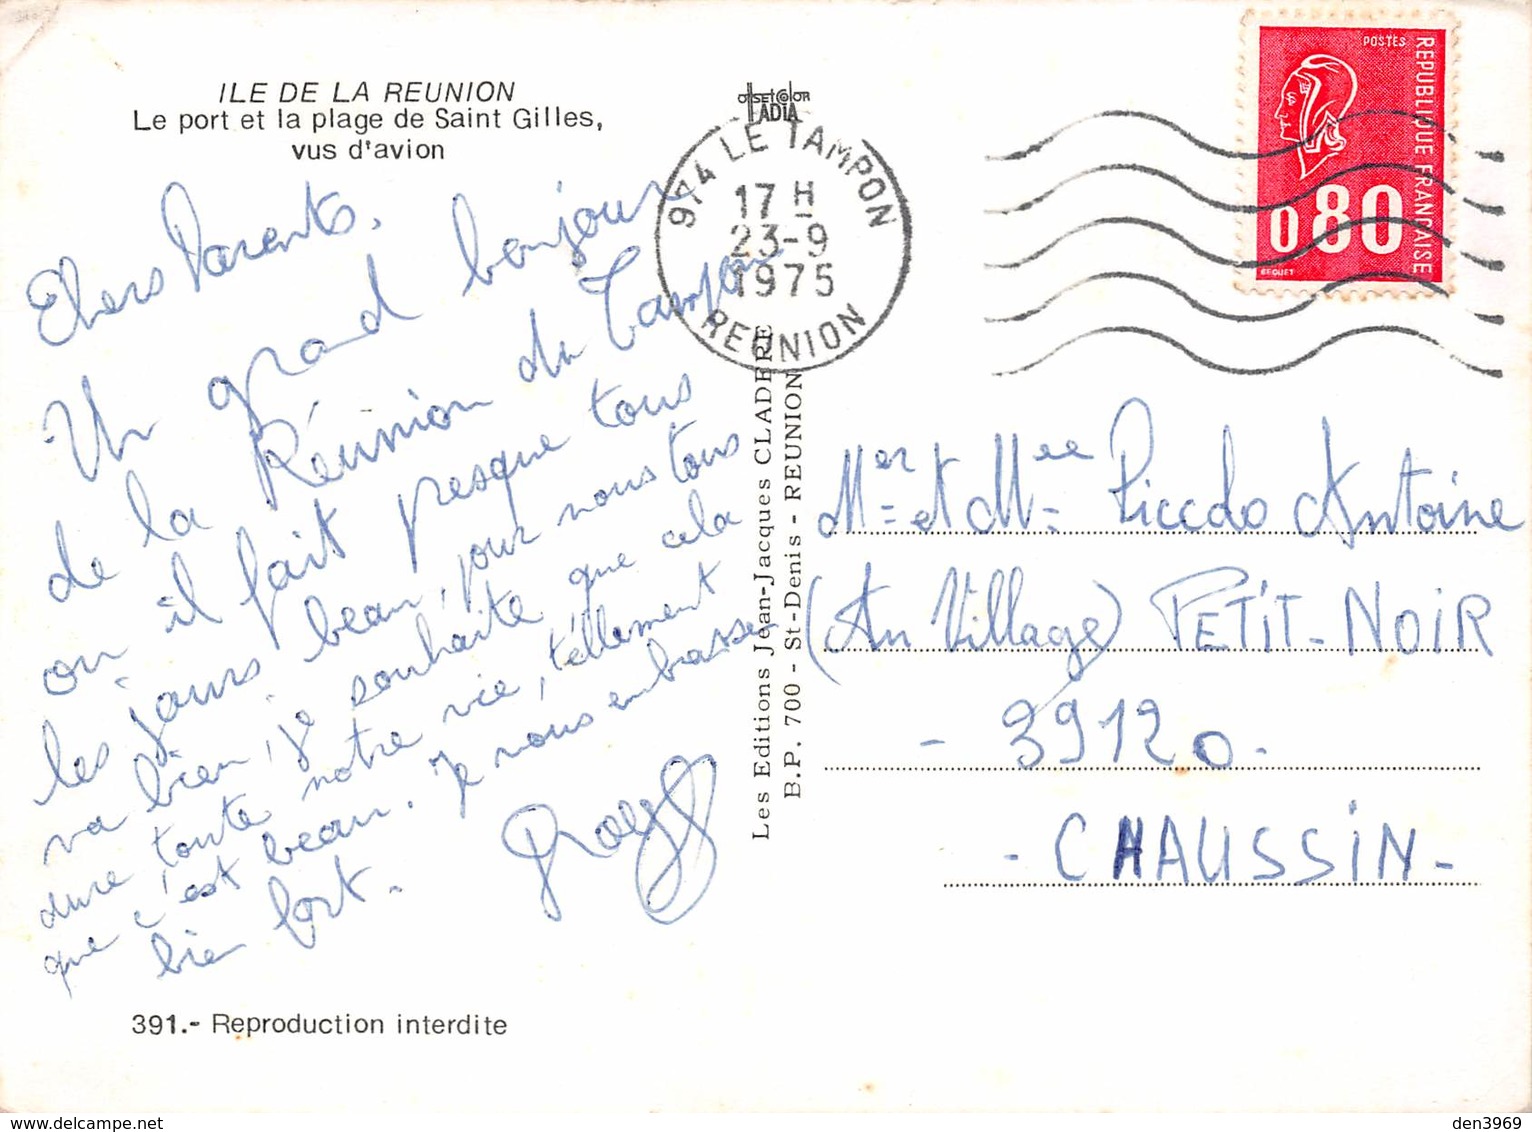 ILE DE LA REUNION
Le port et la plage de Saint Gilles,
vus d'avion
Chers Parents.
Un grand bonjour
de la Réunion du Tampon
ou il fait presque tous
les jours beau, pour nous tous
va bien, je souhaite que cela
dure toute notre vie, tellement
que c'est beau. Je vous embrasse
bien fort.
391.- Reproduction interdite
offsetcolor
974 LE TAMPON
17 H
23-9
1975
REUNION
Les Editions Jean-Jacques CLADERE
B.P. 700 - St-Denis - REUNION
POSTES
REPUBLIQUE FRANCAISE
0,80
BEQUET
Mer et Mee Piccolo Antoine
(Au Village) PETIT-NOIR
- 39120 -
- CHAUSSIN -
den3969